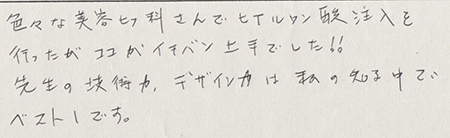 色々な美容ヒフ科さんでヒアルロン酸注入を
行ったがココがイチバン上手でした!!
先生の技術力、デザイン力は私の知る中で
ベスト1です。